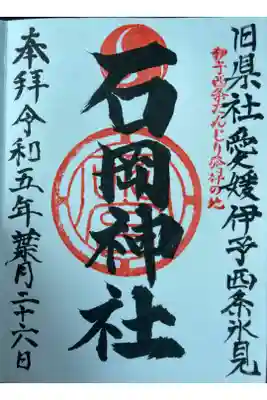 旧県社愛媛伊予西条氷見
伊予西条だんじり発祥の地
石岡神社
奉拝令和五年葉月二十六日